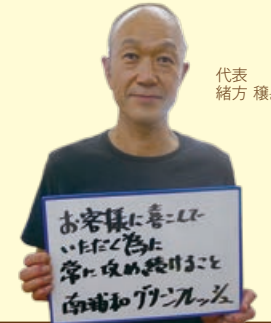 代表
緒方 穣
お客様に喜こんで
いただく為に
常に攻め続けること
南浦和グリーンフレッシュ